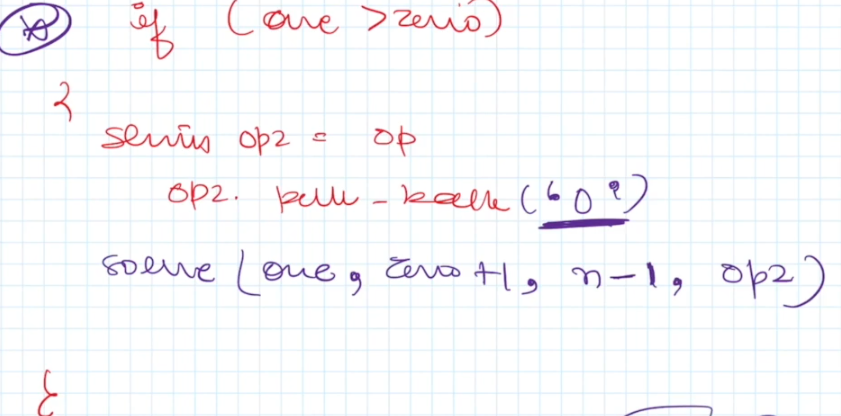 if (one > zero)
{
string op2 = op
op2. push_back('0')
solve (one, zero+1, n-1, op2)
}